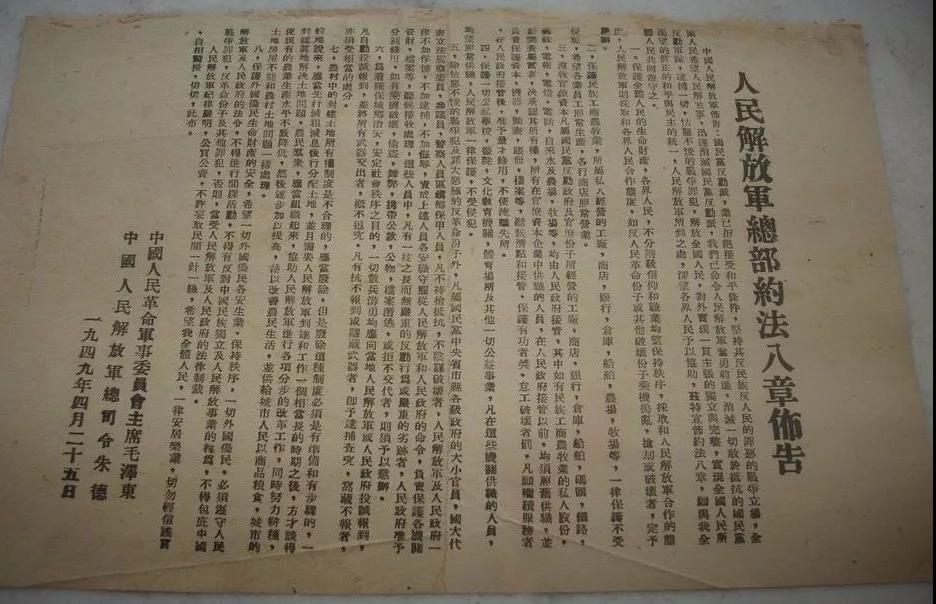 人民解放軍總部約法八章佈告
中國人民解放軍佈告:國民黨反動派,業已拒絕接受和平條件,堅持其反民族反人民的罪惡的戰爭立場,全
國人民希望人民解放軍,迅速消滅國民黨反動派,我們已命令人民解放軍奮勇前進,消滅一切敢於抵抗的國民黨
反動軍隊,逮捕一切,怙惡不悛的戰爭罪犯,解放全國人民,對外實現一貫主張的獨立與完整,實現全國人民所
渴望的真正的和平與民主的統一,人民解放軍所到之處,深望各界人民予以協助,茲特宣佈約法八章,願與我全
體人民共同遵守之。
一,保護全體人民的生命財產,各界人民,不分階級信仰和職業均望保持秩序,採取和人民解放軍合作的態
度,人民解放軍則採取和各界人民合作態度,如反革命份子或其他破壞份子乘機搗亂,搶劫或破壞者,定予
嚴辦。
二,保護民族工商農牧業,所屬私人經營的工廠,商店,銀行,倉庫,船舶,農場,牧場等,一律保護不受
侵犯,希望各業員工照常生產,各行商店照常營業。
三,沒收官僚資本凡屬國民黨反動政府及官僚份子所經營的工廠,商店,銀行,倉庫,船舶,碼頭,鐵路,
郵政,電報,電燈,電話,自來水及農場,牧場等,均由人民政府接管,其中如有民族工商農牧業的私人股份,
經調查屬實者,決承認其所有權,所有在官僚資本企業中供職的人員,在人民政府接管以前,均須照舊供職,並
負責保護資本,機器,圖表,賬冊,檔案等,聽候清點和接管,保護有功者獎,怠工破壞者罰,凡願繼續服務者
,在人民政府接管後,准予量才錄用,不使流離失所。
四,保護一切公私學校,醫院,文化教育機關,體育場所及其他一切公益事業,凡在這些機關供職的人員,
均望照常供職,人民解放軍一律保護,不受侵犯。
五,除怙惡不悛的戰爭犯及罪大惡極的反革命份子外,凡屬國民黨中央省市縣各級政府的大小官員,國大代
表立法監察委員,參議員,警察人員區鎮鄉保甲人員,凡不持槍抵抗,不陰謀破壞者,人民解放軍及人民政府一
律不加俘擄,不加逮捕,不加侮辱,責成上述人員各安職守服從人民解放軍和人民政府的命令,負責保護各機關
資財,檔案等,聽候接收處理,這些人員中,凡有一技之長而無嚴重的反動行為或嚴重的劣跡者,人民政府准予
分別錄用,如有乘機破壞,偷盜,舞弊,携帶公款,公物,檔案潛逃,或拒不交代者,則須予以懲辦。
六,為着確保城鄉治安,安定社會秩序之目的,一切散兵游勇均應向當地人民解放軍或人民政府投誠報到,
凡自動投誠報到,並將所有武器交出者,概不追究,凡有抗不報到或隱藏武器者,即予逮捕查究,窩藏不報者,
亦須受相當的處分。
七,農村中的封建土地所有權制度是不合理的,應當廢除,但是廢除這種制度必須是有準備和有步驟的,一
般地說來,應當先行減租減息後行分配土地,並且需要人民解放軍到達和工作一個相當長的時期之後,方才談得
到認真地解決土地問題,農民羣衆,應當組織起來,協助人民解放軍進行各項分步的改革工作,同時努力耕種,
使現有的農業生產水平不致降低,然後逐步加以提高,藉以改善農民生活,並供給城市人民以商品糧食,城市的
土地房屋不能和農村土地問題一樣處理。
八,保護外國僑民生命財產的安全,希望一切外國僑民各安生業,保持秩序,一切外國僑民,必須遵守人民
解放軍及人民政府的法令,不得進行間諜活動,不得有反對中國民族獨立及人民解放事業的行為,不得包庇中國
戰爭罪犯,反革命份子及其他罪犯,否則,當受人民解放軍及人民政府的法律制裁。
人民解放軍紀律嚴明,公買公賣,不許妄取民間一針一線,希望我全體人民,一律安居樂業,切勿輕信謠言
,自相驚擾,切切,此佈。
中國人民革命軍事委員會主席毛澤東
中國人民解放軍總司令朱 德
一九四九年四月二十五日